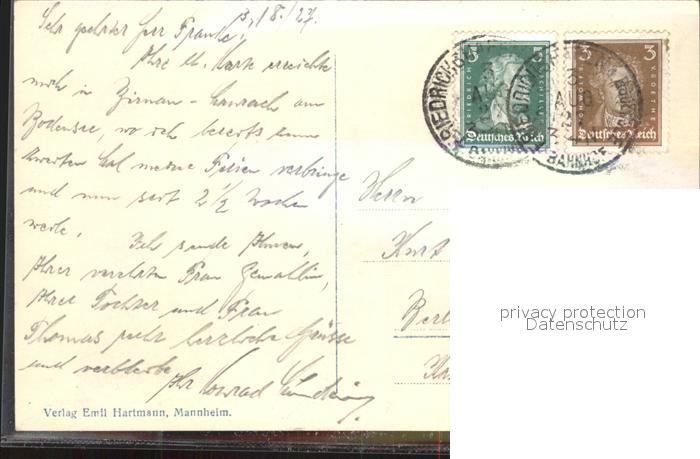 3./8./27.
Sehr geehrter Herr Franke!
Ihre lb. Karte erreichte
mich in am
Bodensee, wo ich bereits zum
zweiten Mal meine Ferien verbringe
und nun seit 2 1/2 Wochen
weile. Ich sende Ihnen,
Ihrer verehrten Frau Gemahlin,
Ihrer Tochter und Frau
Thomas sehr herzliche Grüsse
und verbleibe
Ihr Konrad
Verlag Emil Hartmann, Mannheim.
5 5
FRIEDRICH SCHILLER
Deutsches Reich
3 3
JOH. WOLFG. V. GOETHE
Deutsches Reich
BAHNHOF
Herrn
Kurt
Berl
privacy protection
Datenschutz